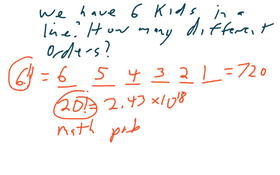 We have 6 Kids in a
line? How many different
orders?
6! = 6 5 4 3 2 1 = 720
20! = 2.43 × 10^18
math prob